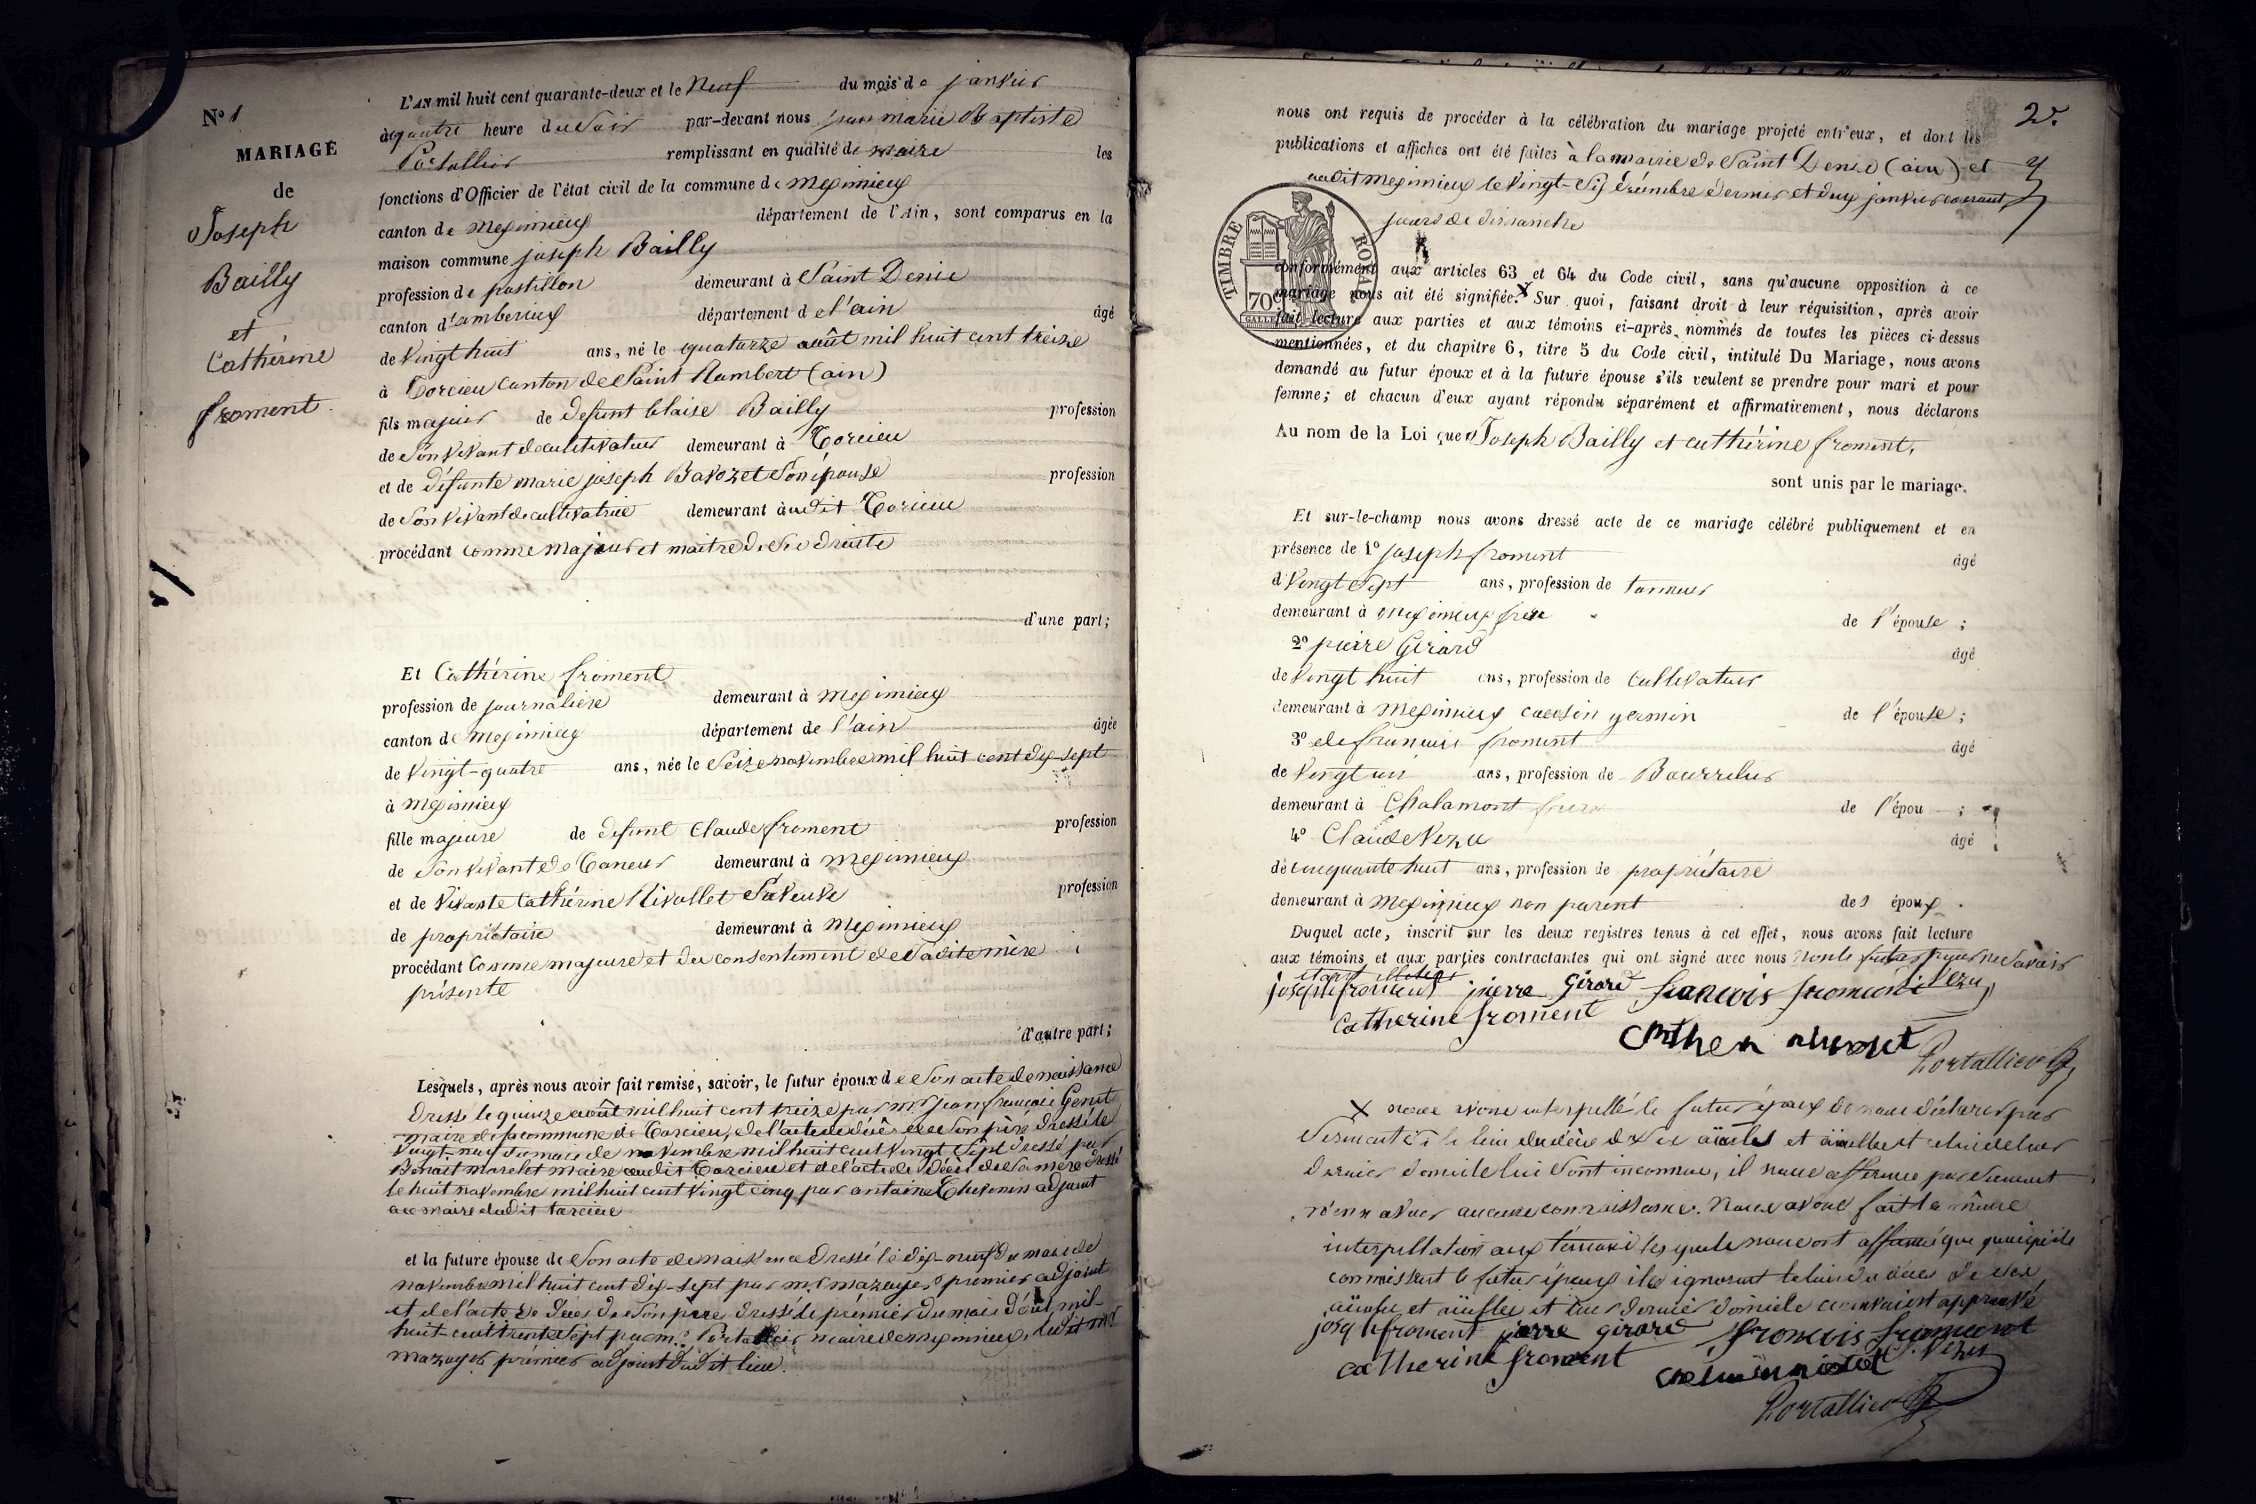 N° 1
MARIAGE
de
Joseph
Bailly
et
Cathérine
froment.
L'AN mil huit cent quarante-deux et le Neuf du mois de janvier
à quatre heure du Soir par-devant nous jean marie Baptiste
Portallier remplissant en qualité de maire les
fonctions d'Officier de l'état civil de la commune de meximieux
canton de meximieux département de l'Ain, sont comparus en la
maison commune joseph Bailly
profession de postillon demeurant à Saint Denis
canton d'amberieux département de l'ain âgé
de Vingt huit ans, né le quatorze août mil huit cent treize
à Torcieu Canton de Saint Rambert (ain)
fils majeur de defunt blaise Bailly profession
de Son Vivant de cultivateur demeurant à Torcieu
et de défunte marie joseph Bavozet Son épouse profession
de Son Vivant de cultivatrice demeurant audit Torcieu
procédant comme majeur et maître de Ses droits
d'une part;
Et Cathérine froment
profession de journalière demeurant à meximieux
canton de meximieux département de l'ain âgée
de Vingt-quatre ans, née le Seize novembre mil huit cent dix-sept
à meximieux
fille majeure de defunt Claude froment profession
de Son Vivant de Taneur demeurant à meximieux
et de Vivante Cathérine Nivollet Sa Veuve profession
de propriétaire demeurant à meximieux
procédant Comme majeure et du consentement de Sadite mère
présente
d'autre part;
Lesquels, après nous avoir fait remise, savoir, le futur époux de Son acte de naissance
Dressé le quinze août mil huit cent treize par mr jean françois Genit
maire de la commune de Torcieu, de l'acte de décès de Son père dressé le
Vingt-neuf du mois de novembre mil huit cent Vingt Sept dressé par
Benoit marelet maire dudit Torcieu et de l'acte de décès de Sa mère dressé
le huit novembre mil huit cent Vingt cinq par antoine Thevenin adjoint
au maire dudit torcieu
et la future épouse de Son acte de naissance dressé le dix-neuf du mois de
novembre mil huit cent dix-sept par mr mazoyer premier adjoint
et de l'acte de décès de Son père dressé le prémier du mois d'août mil
huit cent trente Sept par mr Portallier maire de meximieux, ledit mr
mazoyer prémier adjoint dudit lieu.
2.
nous ont requis de procéder à la célébration du mariage projeté entr'eux, et dont les
publications et affiches ont été faites à la mairie de Saint Denis (ain) et
audit meximieux le Vingt-Six décembre dernier et deux janvier courant
jours de dimanche
TIMBRE ROYAL
70c
conformément aux articles 63 et 64 du Code civil, sans qu'aucune opposition à ce
mariage nous ait été signifiée. X Sur quoi, faisant droit à leur réquisition, après avoir
fait lecture aux parties et aux témoins ci-après nommés de toutes les pièces ci-dessus
mentionnées, et du chapitre 6, titre 5 du Code civil, intitulé Du Mariage, nous avons
demandé au futur époux et à la future épouse s'ils veulent se prendre pour mari et pour
femme; et chacun d'eux ayant répondu séparément et affirmativement, nous déclarons
Au nom de la Loi que Joseph Bailly et cathérine froment.
sont unis par le mariage.
Et sur-le-champ nous avons dressé acte de ce mariage célébré publiquement et en
présence de 1° joseph froment âgé
d Vingt Sept ans, profession de tanneur
demeurant à meximieux frère de l'épouse ;
2° pierre Girard âgé
de Vingt huit ans, profession de cultivateur
demeurant à meximieux cousin germin de l'épouse ;
3° de françois froment âgé
de Vingt un ans, profession de Bourrelier
demeurant à Chalamont frère de l'épou ;
4° Claude Vezu âgé
de cinquante huit ans, profession de propriétaire
demeurant à meximieux non parent des époux .
Duquel acte, inscrit sur les deux registres tenus à cet effet, nous avons fait lecture
aux témoins et aux parties contractantes qui ont signé avec nous non le futur époux ne Savoir
joseph froment pierre Girard francois froment Vezu
Catherine froment
Portallier
X nous avons interpellé le futur époux de nous déclarer par
Serment Si le lieu du décès de Ses aïeuls et aïeulles et celui de leur
Dernier domicile lui Sont inconnus, il nous afferme par Serment
n'en avoir aucune connaissance. Nous avons fait la même
interpellation aux témoins lesquels nous ont affirmé que quoiqu'ils
connaissent le futur époux ils ignorent le lieu du décès de Ses
aïeuls et aïeulles et leur dernier domicile approuvé
joseph froment pierre girard francois froment
catherine froment C. Vezu
Portallier